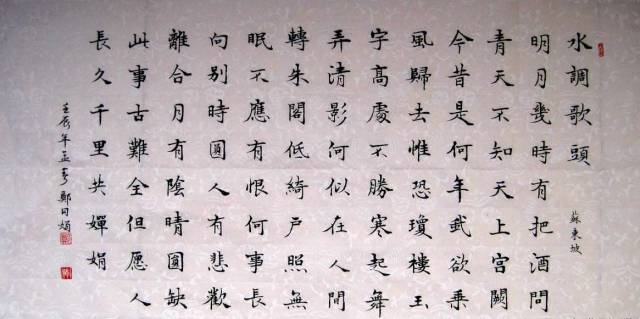 水調歌頭
蘇東坡
明月幾時有把酒問
青天不知天上宮闕
今昔是何年我欲乘
風歸去惟恐瓊樓玉
宇高處不勝寒起舞
弄清影何似在人間
轉朱閣低綺戶照無
眠不應有恨何事長
向別時圓人有悲歡
離合月有陰晴圓缺
此事古難全但愿人
長久千里共嬋娟
壬辰年孟春鄭月娟